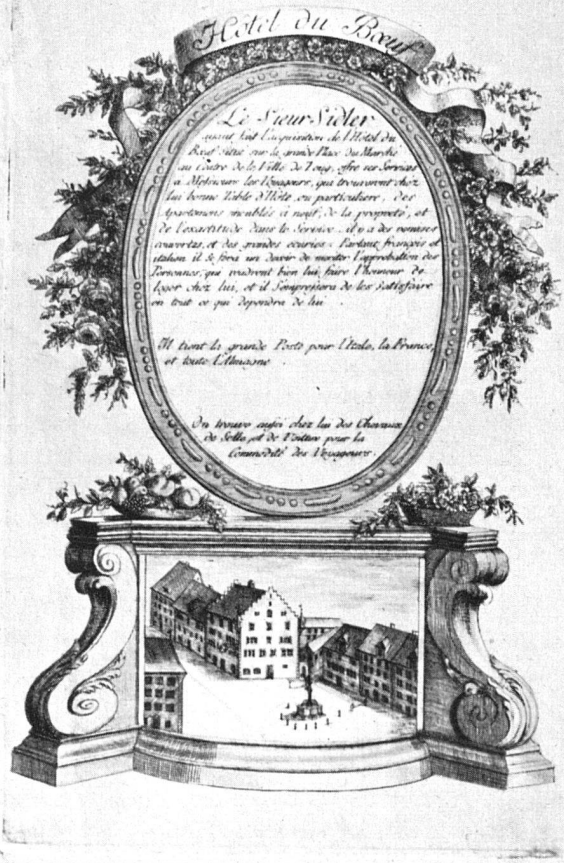 Hôtel du Bœuf
Le Sieur Sidler
aiant fait l'acquisition de l'Hôtel du
Bœuf situé sur la grande Place du Marché
au Centre de la Ville de Zoug, offre ses Services
à Messieurs les Voyageurs, qui trouveront chez
lui bonne Table d'Hôte, ou particuliere, des
Apartemens meublés à neuf, de la propreté, et
de l'exactitude dans le Service. il y a des remises
couvertes, et des grandes écuries. Parlant françois et
italien il se fera un devoir de meriter l'approbation des
Personnes, qui voudront bien lui faire l'honneur de
loger chez lui, et il s'empressera de les Satisfaire
en tout ce qui dependra de lui.
Il tient la grande Poste pour l'Italie, la France,
et toute l'Almagne.
On trouve aussi chez lui des Chevaux
de Selle, et de Voiture pour la
Commodité des Voyageurs.